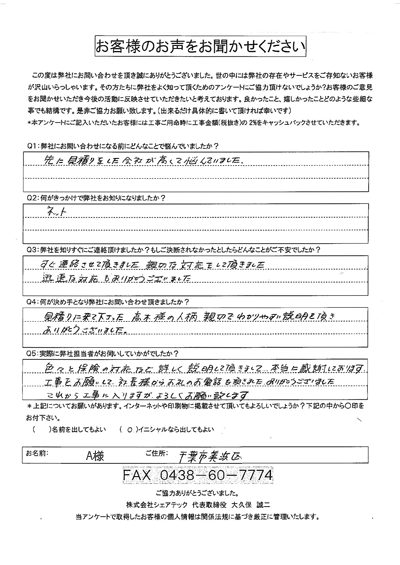 お客様のお声をお聞かせください
この度は弊社にお問い合わせを頂き誠にありがとうございました。世の中には弊社の存在やサービスをご存知ないお客様
が沢山いらっしゃいます。その方たちに弊社をよく知って頂くためのアンケートにご協力頂けないでしょうか?お客様のご意見
をお聞かせいただき今後の活動に反映させていただきたいと考えております。良かったこと、嬉しかったことどのような些細な
事でも結構です。是非ご協力お願い致します。(出来るだけ具体的に書いて頂ければ幸いです)
*本アンケートにご記入いただいたお客様には工事ご用命時に工事金額(税抜き)の2%をキャッシュバックさせていただきます。
Q1:弊社にお問い合わせになる前にどんなことで悩んでいましたか?
先に見積りをした会社が高くて悩んでいました。
Q2:何がきっかけで弊社をお知りになりましたか?
ネット
Q3:弊社を知りすぐにご連絡頂けましたか?もしご決断されなかったとしたらどんなことがご不安でしたか?
すぐ連絡させて頂きました 親切な対応をして頂きました
迅速な対応もありがとうございました
Q4:何が決め手となり弊社にお問い合わせ頂きましたか?
見積りに来て下さった高木様の人柄、親切でわかりやすい説明を頂き
ありがとうございました。
Q5:実際に弊社担当者がお伺いしていかがでしたか?
色々と保険の対応など詳しく説明して頂きまして、本当に感謝しております。
工事をお願いして、社長様からお礼のお電話も頂きまして ありがとうございました
これから工事に入りますが よろしくお願い致します
*上記についてお願いがあります。インターネットや印刷物に掲載させて頂いてもよろしいでしょうか?下記の中から〇印を
お付下さい。
( )名前を出してもよい ( O )イニシャルなら出してもよい
お名前: A様 ご住所: 千葉市美浜区
FAX 0438-60-7774
ご協力ありがとうございました。
株式会社シェアテック 代表取締役 大久保 誠二
当アンケートで取得したお客様の個人情報は関係法規に基づき厳正に管理いたします。